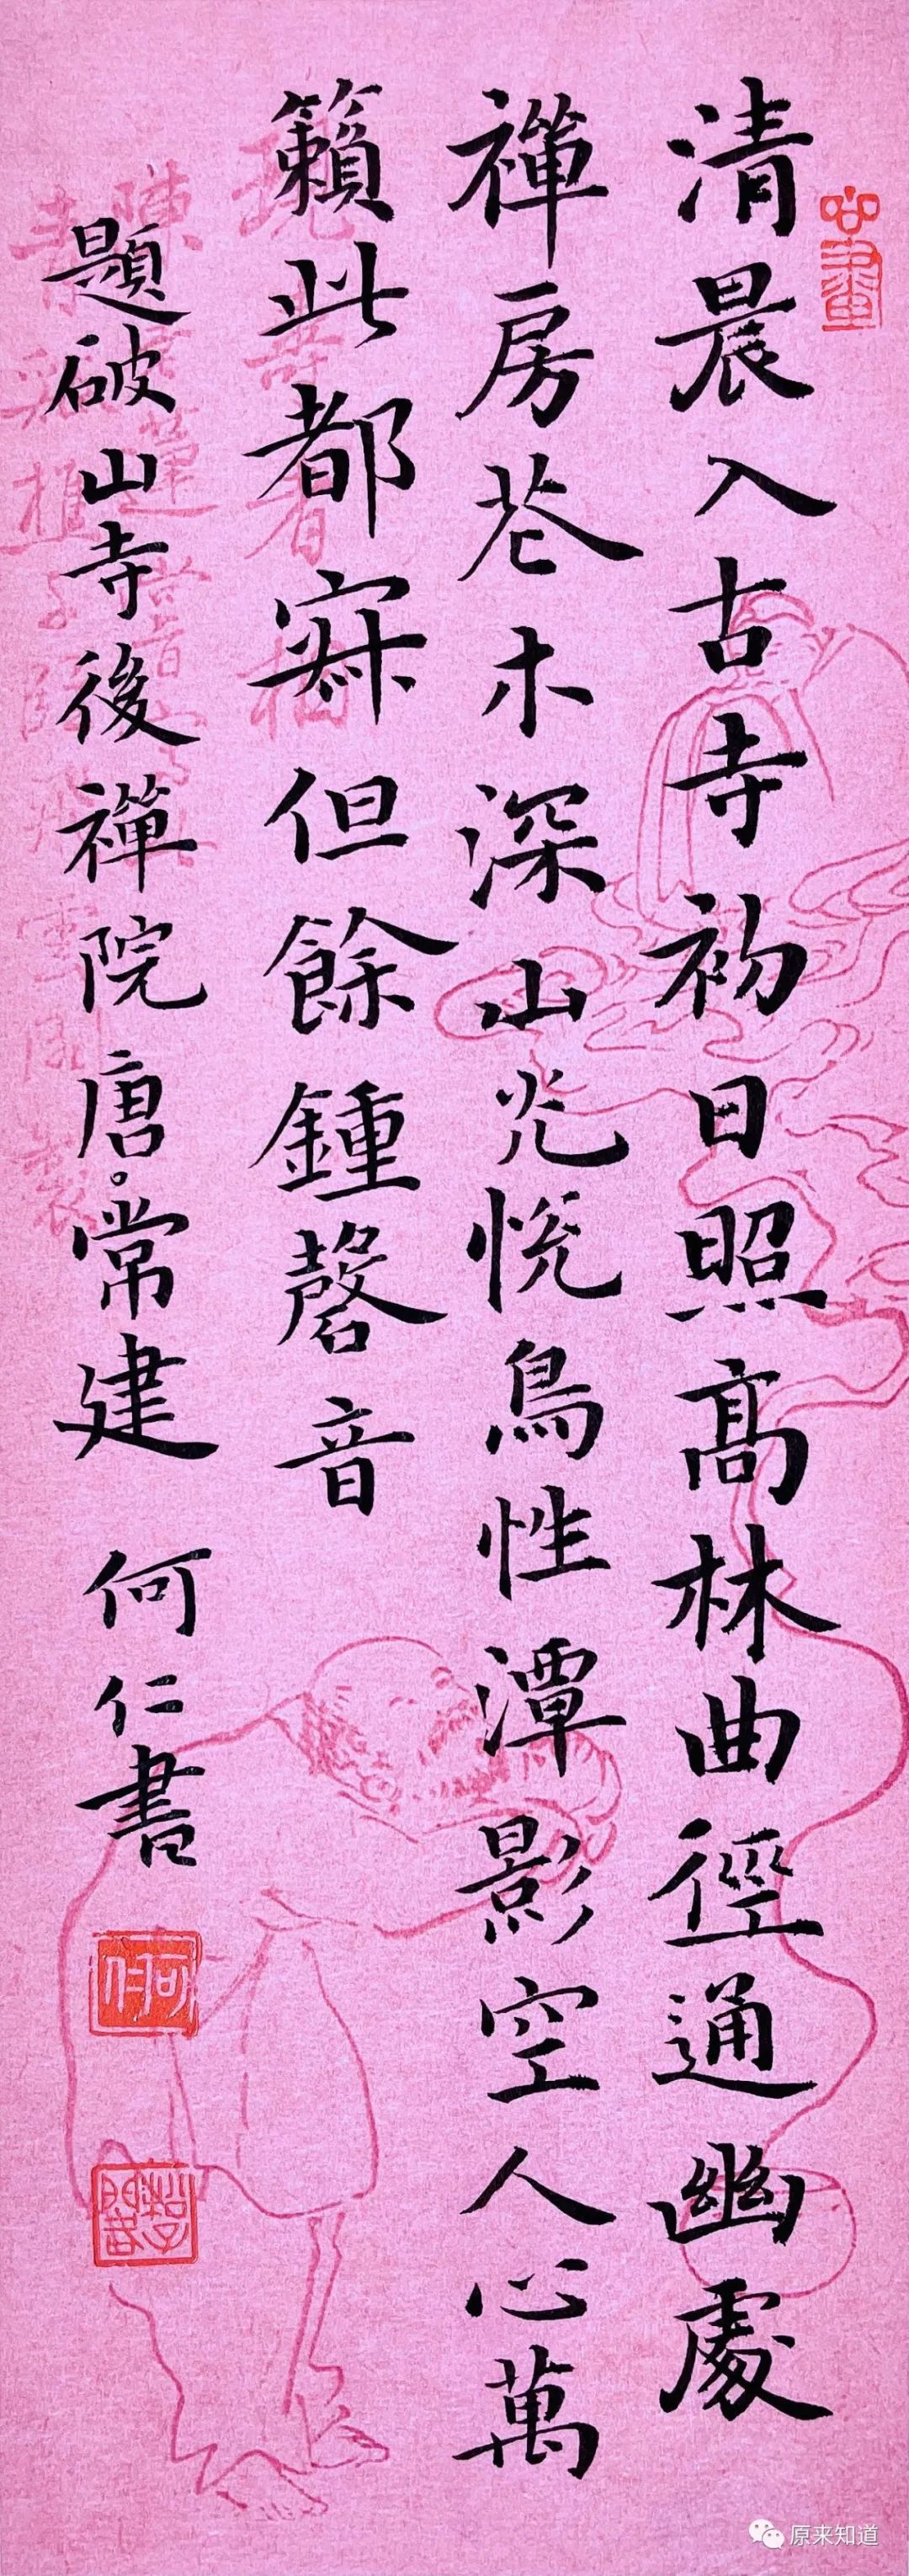 心畫
清晨入古寺初日照高林曲徑通幽處
禪房花木深山光悅鳥性潭影空人心萬
籟此都寂但餘鍾磬音
題破山寺後禪院唐。常建 何仁書
原来知道